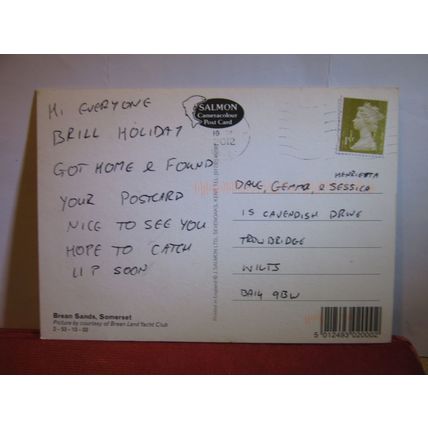 HI EVERYONE
BRILL HOLIDAY
GOT HOME & FOUND
YOUR POSTCARD
NICE TO SEE YOU
HOPE TO CATCH
UP SOON
SALMON
Cameracolour
Post Card
1st
HENRIETTA
DAVE, GEMMA, & JESSICA
15 CAVENDISH DRIVE
TROWBRIDGE
WILTS
BA14 9BW
Brean Sands, Somerset
Picture by courtesy of Brean Land Yacht Club
2-50-10-02
Printed in England © J. SALMON LTD., SEVENOAKS, KENT
5 012493 020002